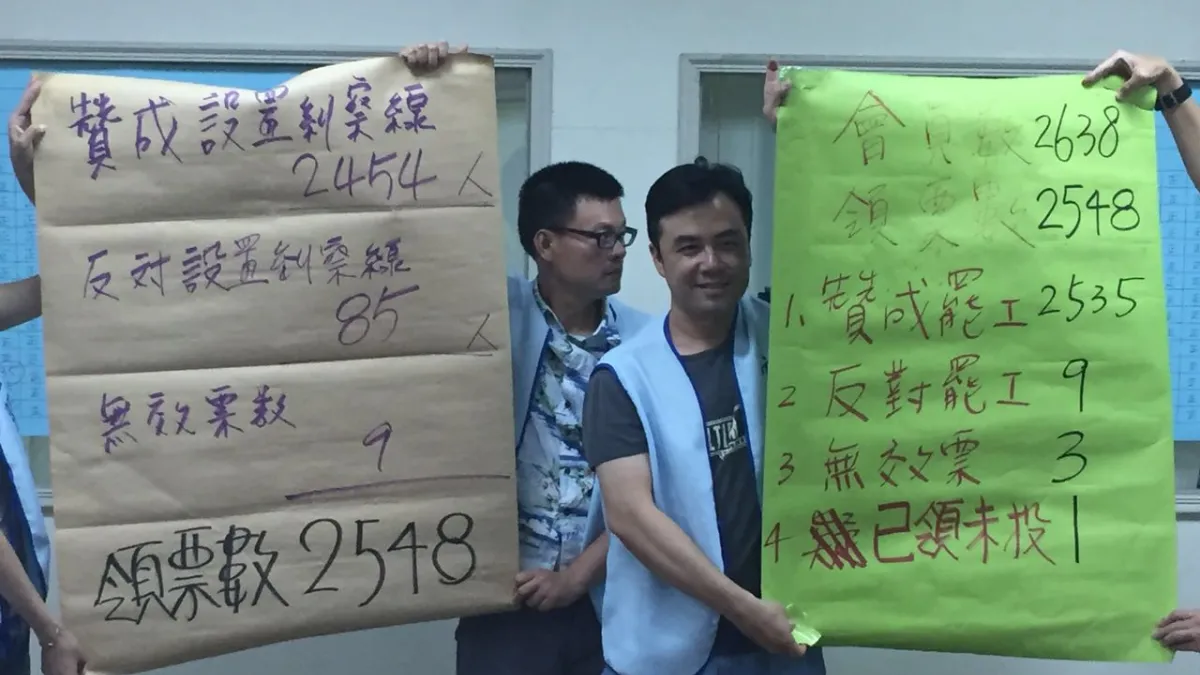 贊成設置糾察線
2454人
反対設置糾察線
85人
無效票数
9
領票數2548
會員數 2638
領票數 2548
1、贊成罷工 2535
2 反對罷工 9
3 無效票 3
4 已領未投 1